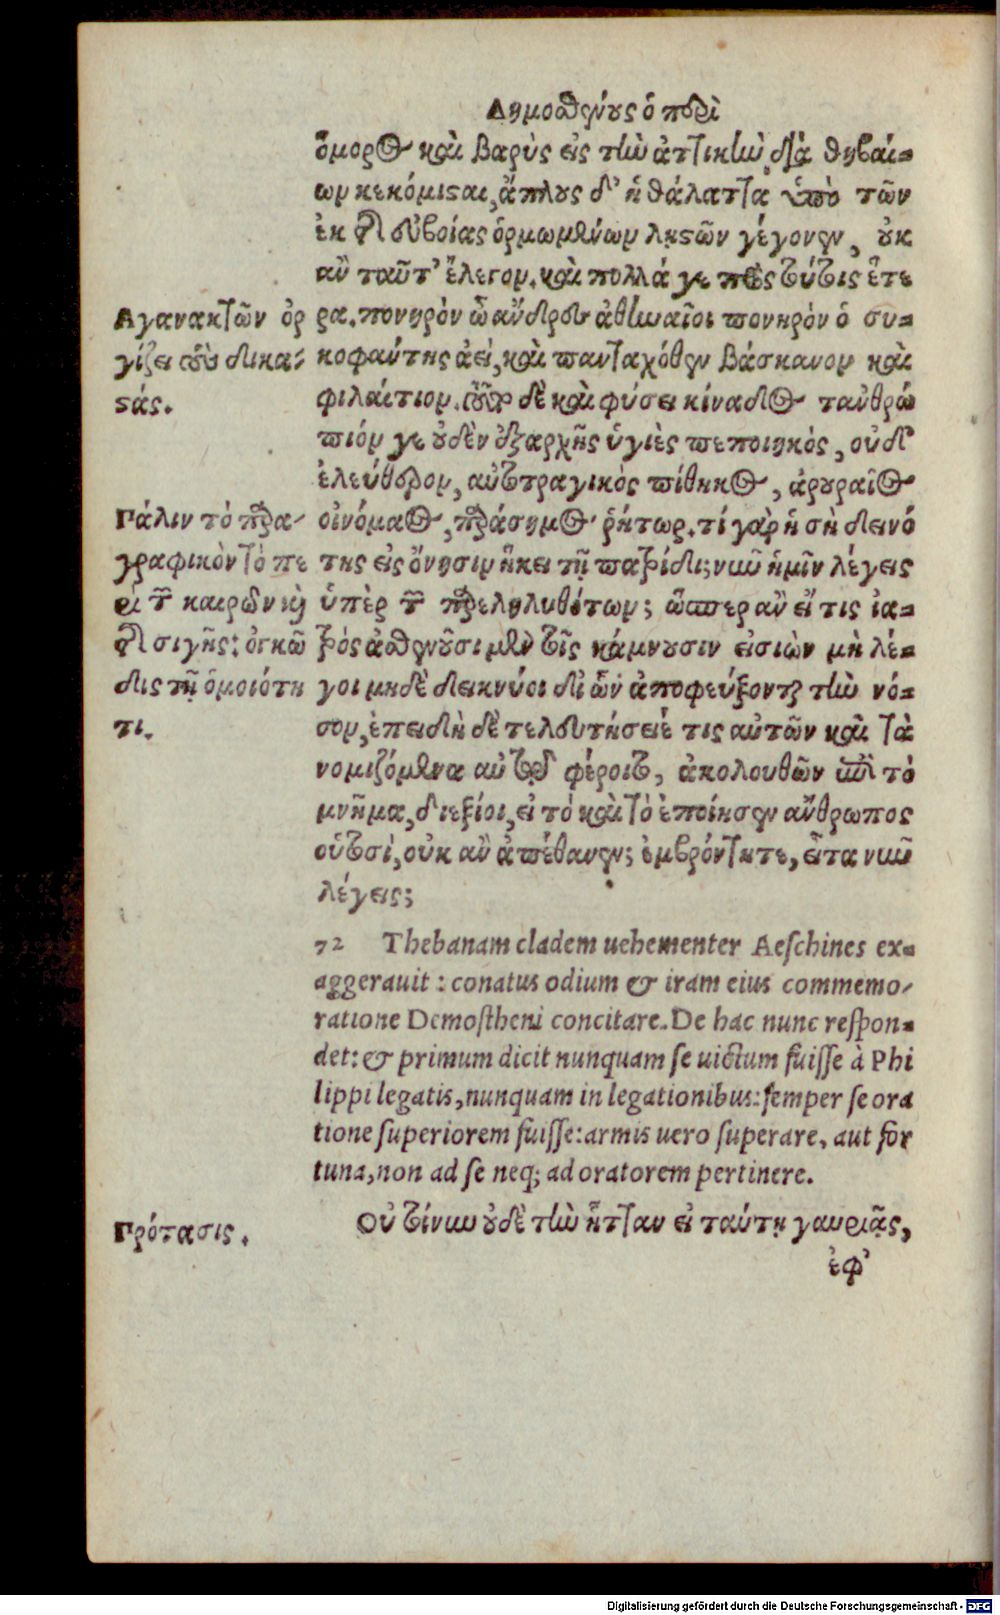 Δημοσθένους ὁ περὶ
ὅμορος καὶ βαρὺς εἰς τὴν ἀττικὴν διὰ θηβαί-
ων κεκόμισαι, ἄπλους δ' ἡ θάλαττα ὑπὸ τῶν
ἐκ τῆς εὐβοίας ὁρμωμένων λῃστῶν γέγονεν, οὐκ
ἂν ταῦτ' ἔλεγον. καὶ πολλά γε πρὸς τούτοις ἕτε
ρα. πονηρὸν ὦ ἄνδρες ἀθηναῖοι πονηρὸν ὁ συ-
κοφάντης ἀεί, καὶ πανταχόθεν βάσκανον καὶ
φιλαίτιον. τοῦτο δὲ καὶ φύσει κίναδος τἀνθρώ
πιόν γε οὐδὲν ἐξαρχῆς ὑγιὲς πεποιηκὸς, οὐδ'
ἐλεύθερον, αὐτοτραγικὸς πίθηκος, ἀρουραῖος
οἰνόμαος, παράσημος ῥήτωρ. τί γὰρ ἡ σὴ δεινό
της εἰς ὄνησιν ἥκει τῇ πατρίδι; νῦν ἡμῖν λέγεις
ὑπὲρ τῶν παρεληλυθότων; ὥσπερ ἂν εἴ τις ἰα-
τρὸς ἀσθενοῦσι μὲν τοῖς κάμνουσιν εἰσιὼν μὴ λέ-
γοι μηδὲ δεικνύοι δι ὧν ἀποφεύξονται τὴν νό-
σον, ἐπειδὴ δὲ τελευτήσειέ τις αὐτῶν καὶ τὰ
νομιζόμενα αὐτῷ φέροιτο, ἀκολουθῶν ἐπὶ τὸ
μνῆμα, διεξίοι, εἰ τὸ καὶ τὸ ἐποίησεν ἄνθρωπος
οὑτοσὶ, οὐκ ἂν ἀπέθανεν; ἐμβρόντητε, εἶτα νῦν
λέγεις;
Αγανακτῶν ὀρ
γίζει τοὺς δικα-
στάς.
Πάλιν τὸ παρα-
γραφικὸν τὸ πε
ρὶ τῶν καιρῶν καὶ
τῆς σιγῆς: ὀγκῶ
δις τῇ ὁμοιότη
τι.
72 Thebanam cladem uehementer Aeschines ex-
aggerauit: conatus odium & iram eius commemo-
ratione Demostheni concitare. De hac nunc respon-
det: & primum dicit nunquam se uictum fuisse à Phi
lippi legatis, nunquam in legationibus: semper se ora
tione superiorem fuisse: armis uero superare, aut for
tuna, non ad se neq; ad oratorem pertinere.
Πρότασις.
Οὐ τοίνυν οὐδὲ τὴν ἧτταν εἰ ταύτῃ γαυριᾷς,
ἐφ'
Digitalisierung gefördert durch die Deutsche Forschungsgemeinschaft - DFG